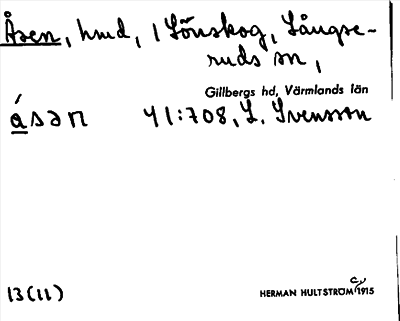 Åsen, hmd, i Lönskog, Långse-
ruds sn,
Gillbergs hd, Värmlands län
ásən 41:708, L. Svensson
13(11)
HERMAN HULTSTRÖM 1915